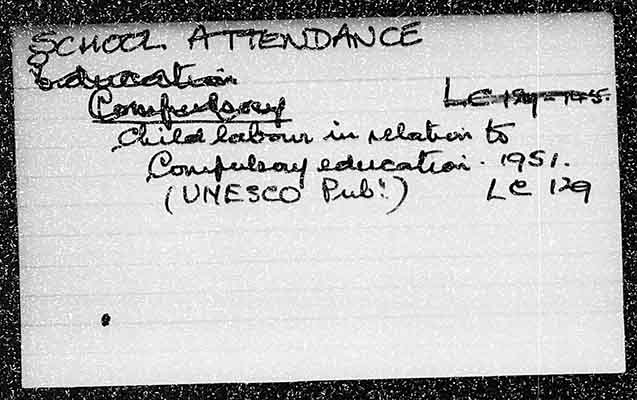 SCHOOL ATTENDANCE
Education
Compulsory LC 129-145.
Child labour in relation to
Compulsory education. 1951.
(UNESCO Pub:) LC 129